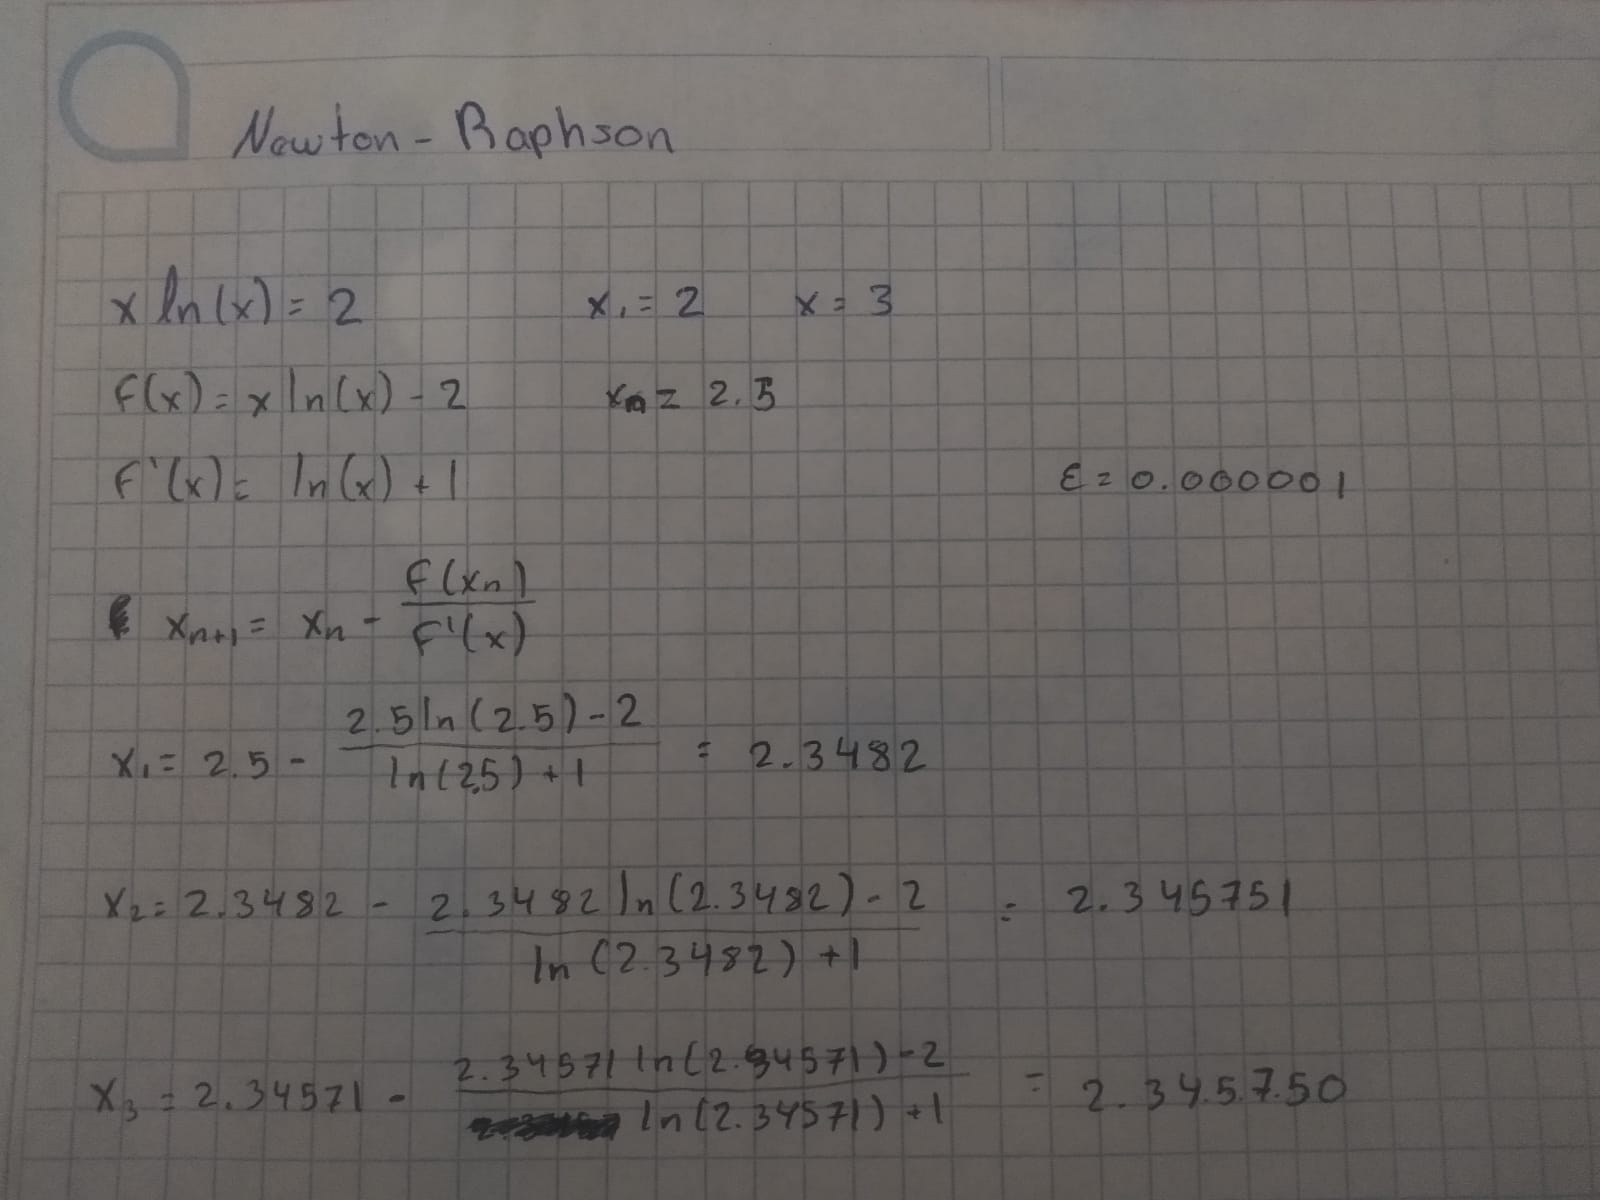 Newton - Raphson
x ln(x) = 2 x₁ = 2 x = 3
f(x) = x ln(x) - 2 xₙ = 2.5
f'(x) = ln(x) + 1 ε = 0.000001
xₙ₊₁ = xₙ - f(xₙ) / f'(x)
x₁ = 2.5 - 2.5 ln(2.5) - 2 / ln(2.5) + 1 = 2.3482
x₂ = 2.3482 - 2.3482 ln(2.3482) - 2 / ln(2.3482) + 1 = 2.345751
x₃ = 2.34571 - 2.34571 ln(2.34571) - 2 / ln(2.34571) + 1 = 2.345750